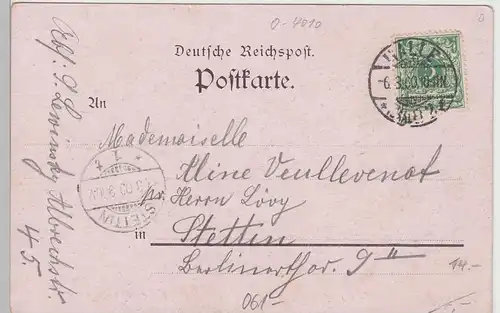 0-4010
Deutsche Reichspost.
Postkarte.
HALLE
6.3.00.
An
Mademoiselle
Aline Veullevenot
pr. Herrn Lévy
in Stettin
Berlinerthor. 9"
STETTIN
Abs. S. Lewinsky Albrechtstr.
45.
061-
14.-